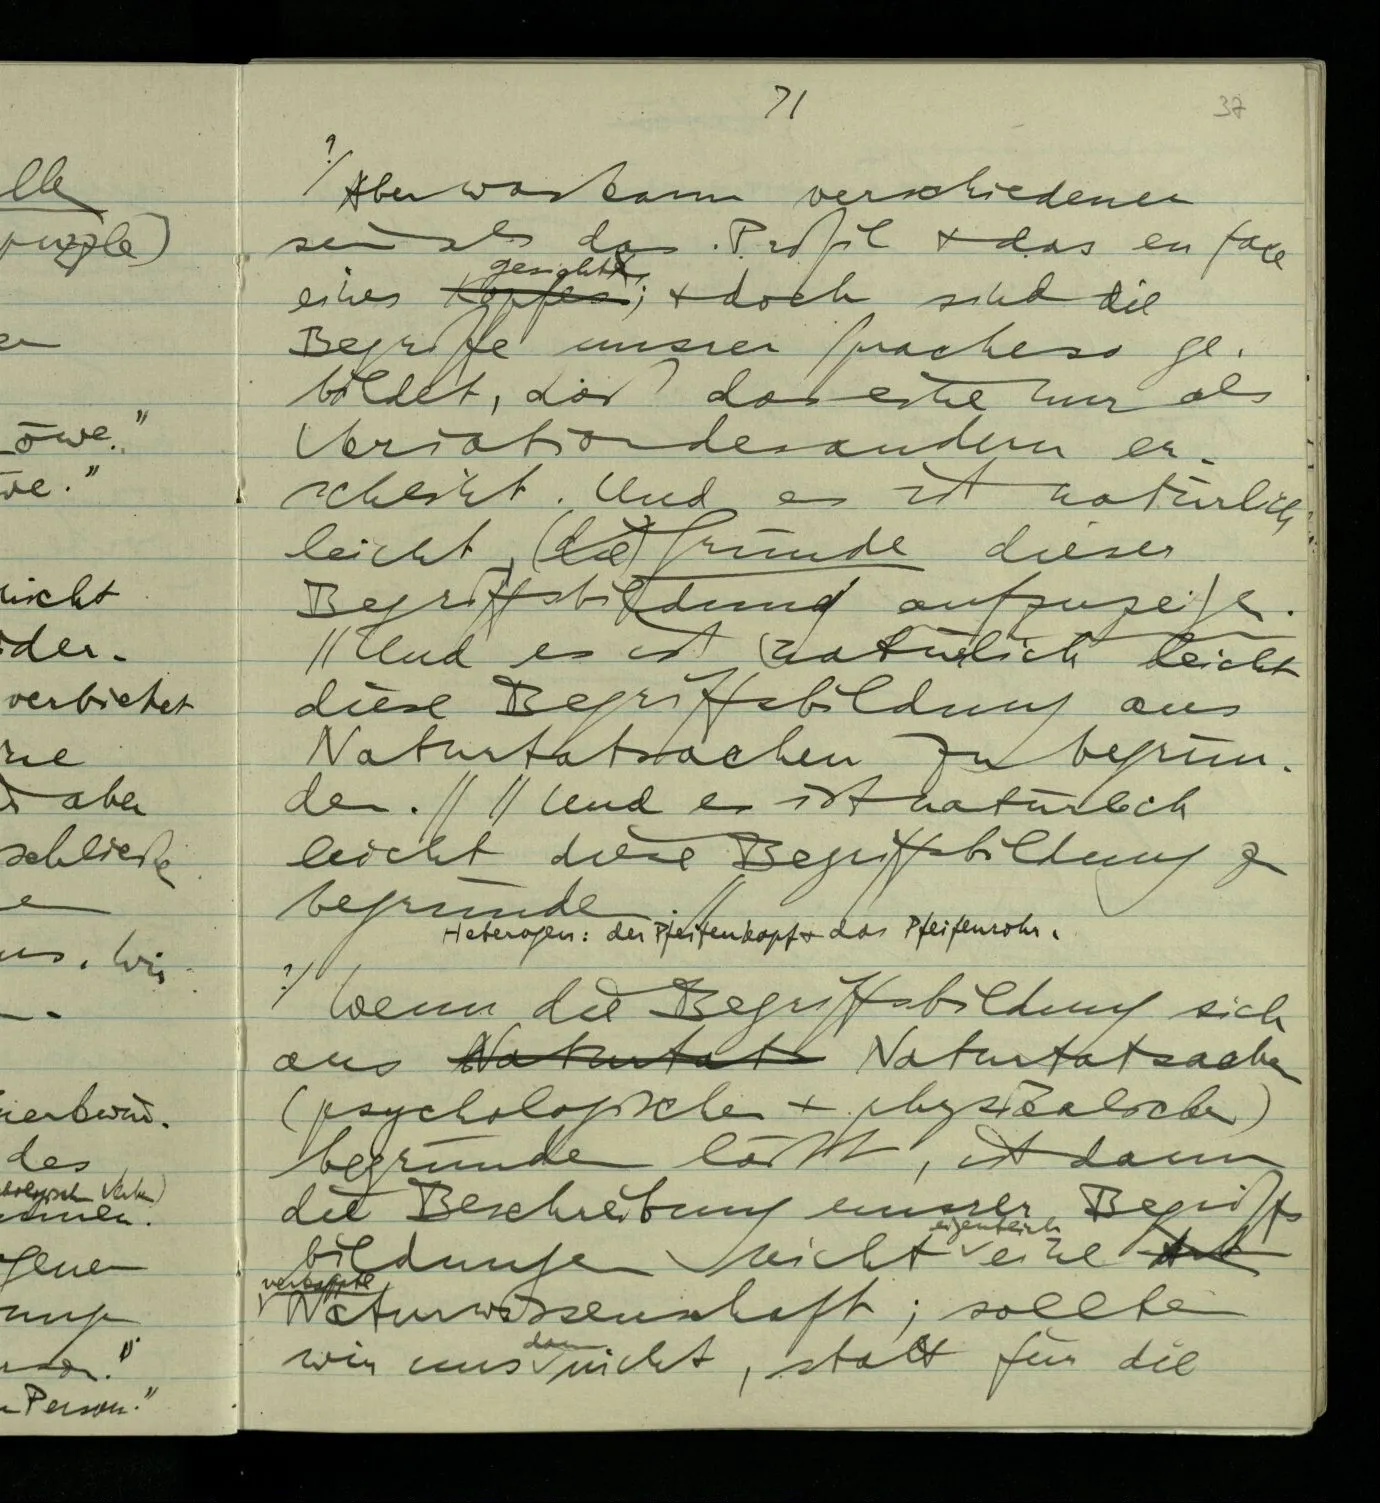 lle
puzzle)
en
öwe."
we."
nicht
oder-
verbietet
rie
aber
schließe
e
us. Wir
merkwür-
des
ologisch
genen
Person."
71
37
?/ Aber was kann verschiedener
sein als das Profil + das en face
eines Kopfes gesichts; + doch sind die
Begriffe unsrer Sprache so ge-
bildet, daß das eine nur als
Variation des andern er-
scheint. Und es ist natürlich
leicht, (die) Gründe dieser
Begriffsbildung aufzuzeigen.
// Und es ist natürlich leicht
diese Begriffsbildung aus
Naturtatsachen zu begrün-
den. // // Und es ist natürlich
leicht diese Begriffsbildung zu
begründen. //
Heterogen: der Pfeifenkopf + das Pfeifenrohr.
?/ Wenn die Begriffsbildung sich
aus Naturtats Naturtatsachen
(psychologischen + physikalischen)
begründen läßt, ist dann
die Beschreibung unsrer Begriffs
bildungen nicht eigentlich eine Art
verkappte
Naturwissenschaft; sollten
wir uns dann nicht, statt für die